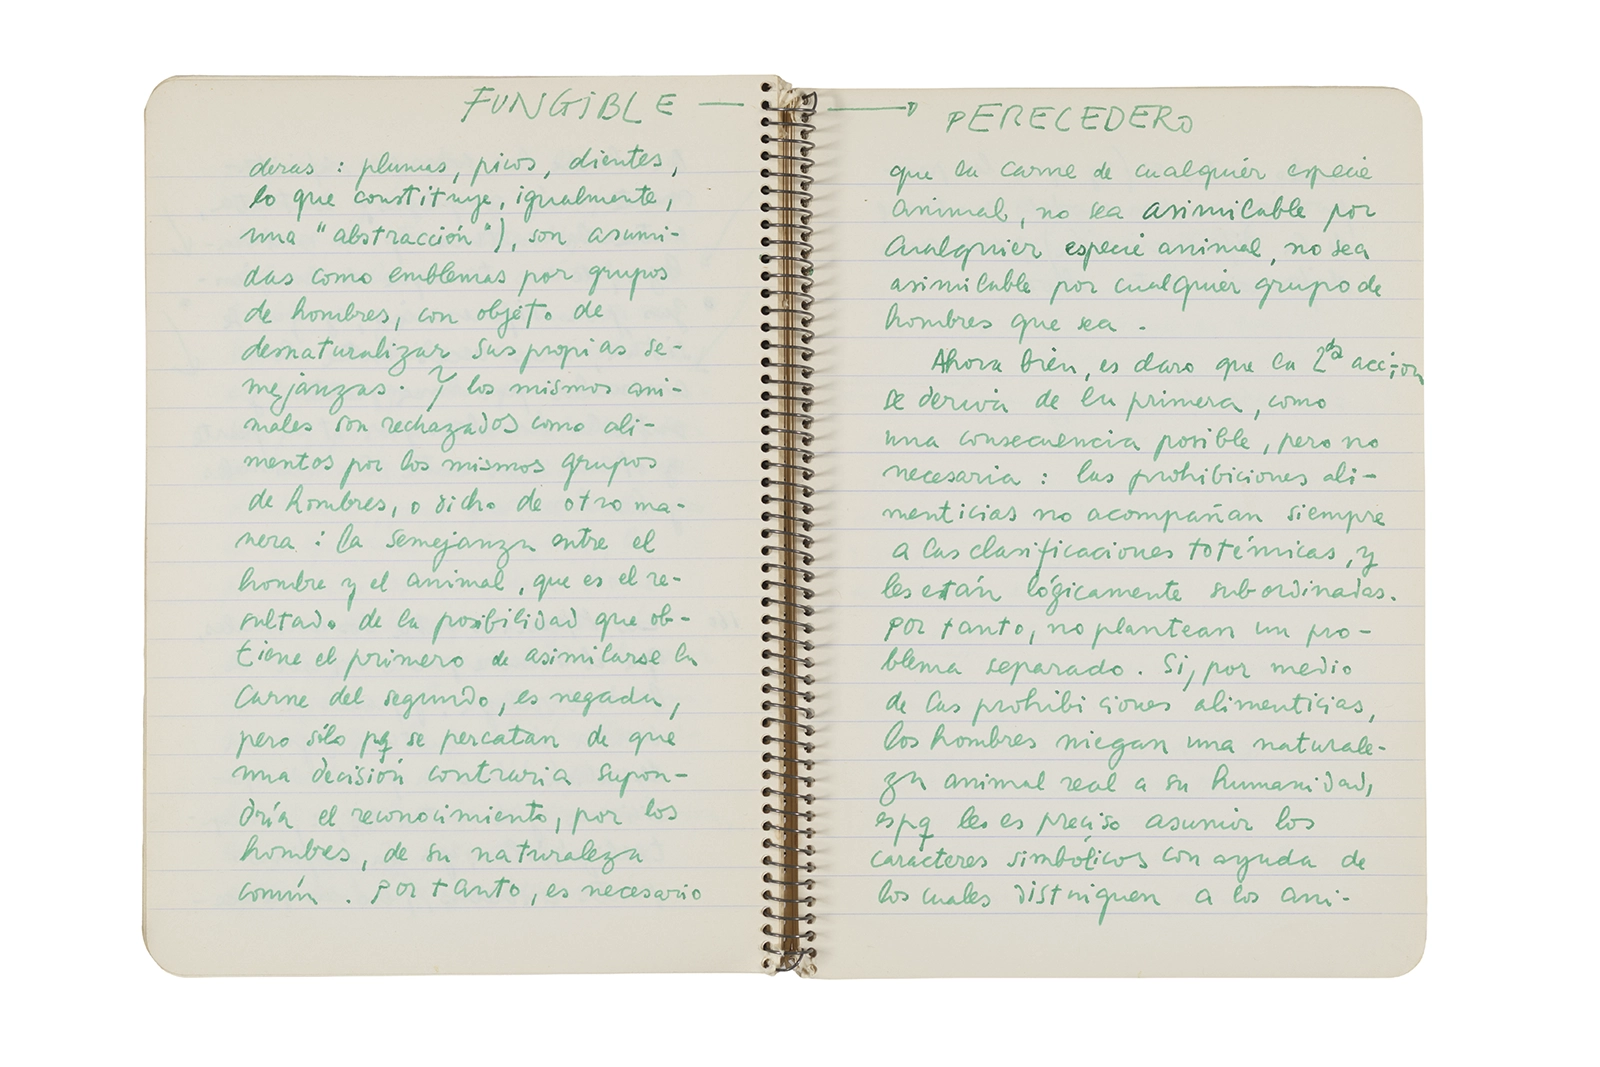 FUNGIBLE —
deras : plumas, picos, dientes,
lo que constituye, igualmente,
una "abstracción"), son asumi-
das como emblemas por grupos
de hombres, con objeto de
desnaturalizar sus propias se-
mejanzas. Y los mismos ani-
males son rechazados como ali-
mentos por los mismos grupos
de hombres, o dicho de otro ma-
nera : la semejanza entre el
hombre y el animal, que es el re-
sultado de la posibilidad que ob-
tiene el primero de asimilarse la
carne del segundo, es negada,
pero sólo pq se percatan de que
una decisión contraria supon-
dría el reconocimiento, por los
hombres, de su naturaleza
común . Por tanto, es necesario
→ PERECEDERO
que la carne de cualquier especie
animal, no sea asimilable por
cualquier especie animal, no sea
asimilable por cualquier grupo de
hombres que sea .
Ahora bien, es claro que la 2ª acción
se deriva de la primera, como
una consecuencia posible, pero no
necesaria : las prohibiciones ali-
menticias no acompañan siempre
a las clasificaciones totémicas, y
les están lógicamente subordinadas.
Por tanto, no plantean un pro-
blema separado. Si, por medio
de las prohibiciones alimenticias,
los hombres niegan una naturale-
za animal real a su humanidad,
es pq les es preciso asumir los
caracteres simbólicos con ayuda de
los cuales distinguen a los ani-